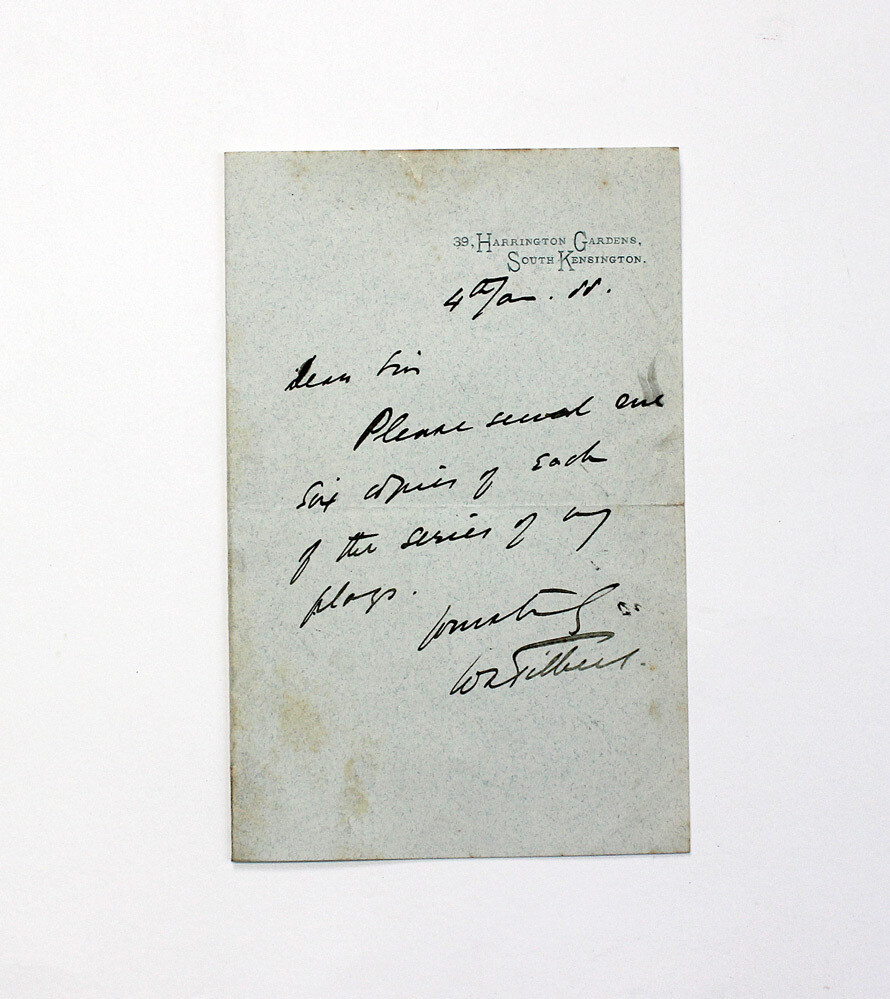 39, Harrington Gardens,
South Kensington.
4th Jan. 88.
Dear Sir
Please send me
six copies of each
of the series of my
plays.
Yours truly
WS Gilbert.